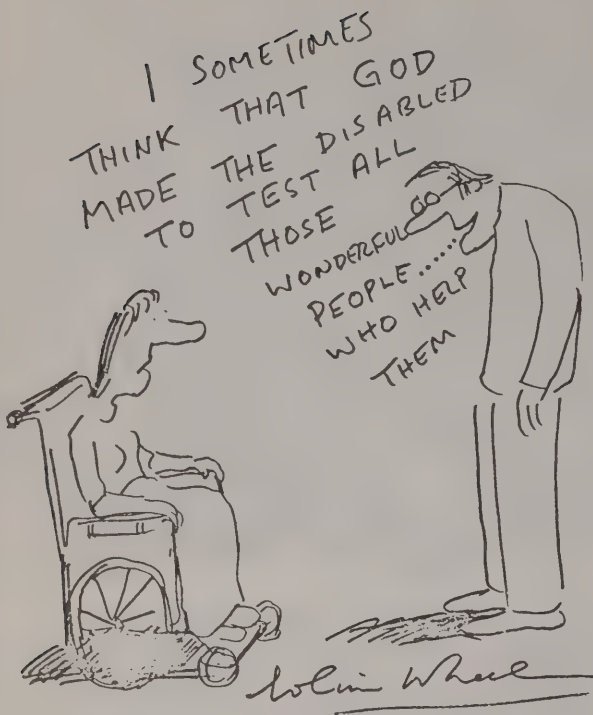 I SOMETIMES
THINK THAT GOD
MADE THE DISABLED
TO TEST ALL
THOSE
WONDERFUL
PEOPLE......
WHO HELP
THEM
Colin Wheeler